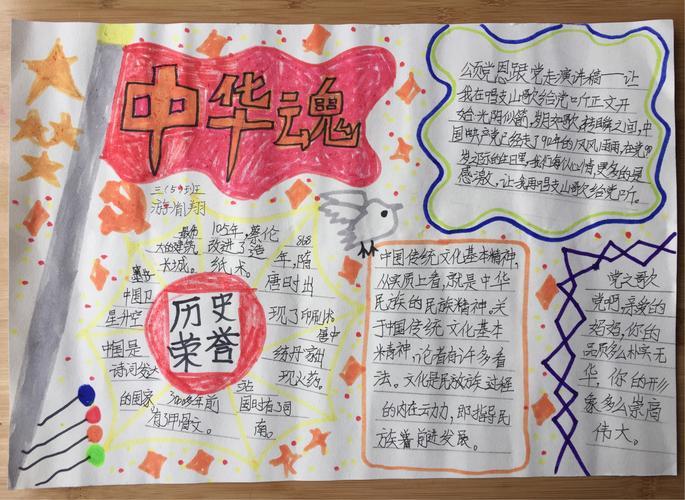 中华魂
三(5)班
游尚翔
颂党恩跟党走演讲稿——让
我在唱支山歌给党听正文开
始光阴似箭,岁月如歌,转瞬之间,中
国共产党已经走了90年的风风雨雨,在党90
岁之际的生日里,我们每个心情更多的是
感激,让我再唱支山歌给党听。
历史
荣誉
105年,蔡伦
改进了造
纸术。
868
年,隋
唐时出
现了印刷术
大的建筑
长城。
中国卫
星升空
中国是
诗词发达
的国家
3000多年前
有甲骨文。
国时有司
南。
现火药。
中国传统文化基本精神,
从实质上看,就是中华
民族的民族精神。关
于中国传统文化基本
精神,论者有许多看
法。文化是民族发展过程
的内在动力,即指导民
族着前进发展。
党之歌
党啊,亲爱的
妈妈,你的
品质多么朴实无
华,你的形
象多么崇高
伟大。